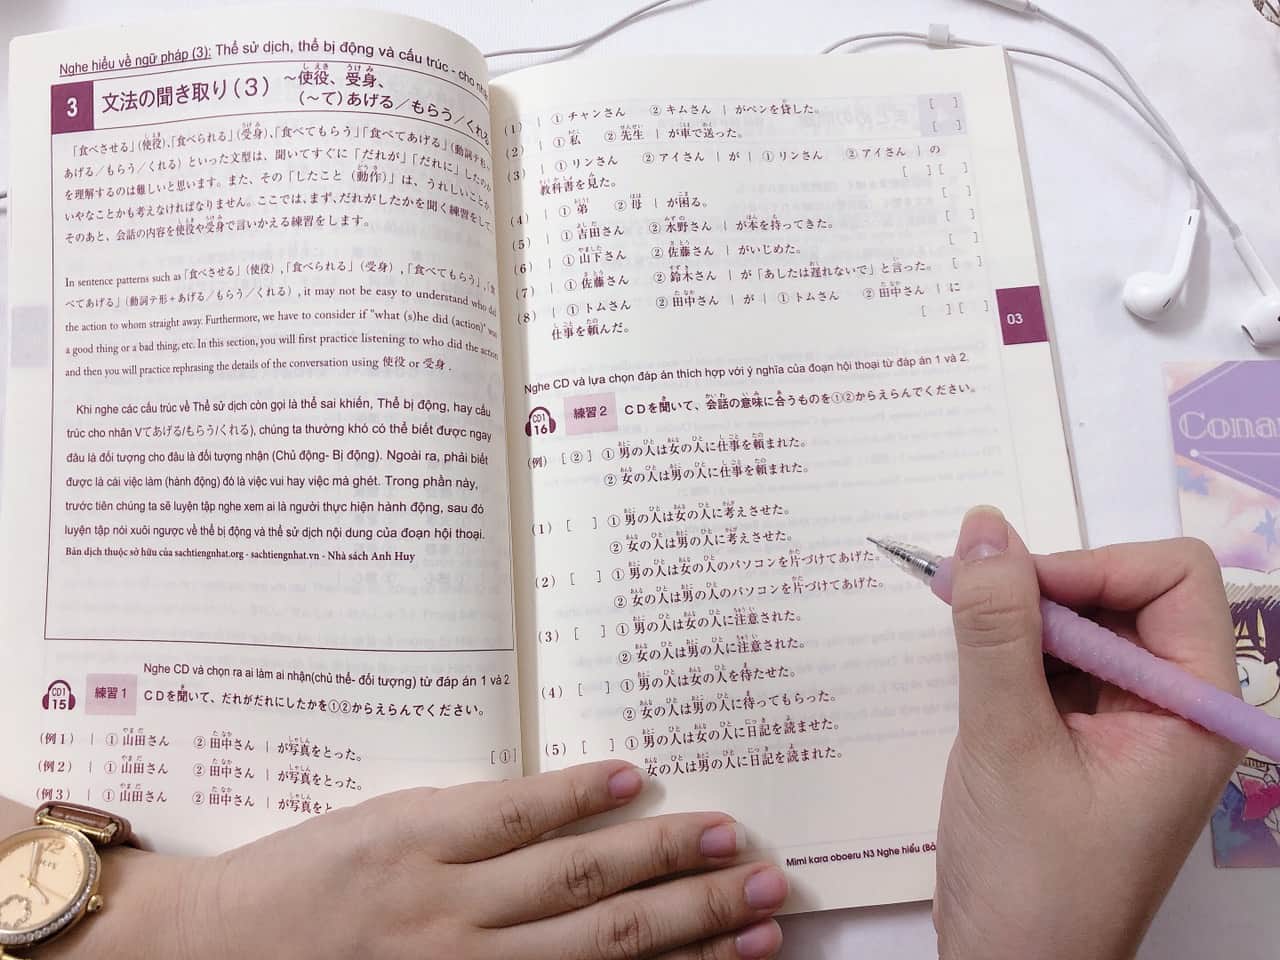 Nghe hiểu về ngữ pháp (3): Thể sử dịch, thể bị động và cấu trúc - cho nhậ
3 文法の聞き取り(3) ～使役、受身、
(～て)あげる／もらう／くれる
「食べさせる」(使役)、「食べられる」(受身)、「食べてもらう」「食べてあげる」(動詞テ形＋
あげる／もらう／くれる) といった文型は、聞いてすぐに「だれが」「だれに」したのか
を理解するのは難しいと思います。また、その「したこと (動作)」は、うれしいことか
いやなことかも考えなければなりません。ここでは、まず、だれがしたかを聞く練習をして、
そのあと、会話の内容を使役や受身で言いかえる練習をします。
In sentence patterns such as「食べさせる」(使役) ,「食べられる」(受身) ,「食べてもらう」,「食
べてあげる」(動詞テ形＋あげる／もらう／くれる) , it may not be easy to understand who did
the action to whom straight away. Furthermore, we have to consider if "what (s)he did (action)" was
a good thing or a bad thing, etc. In this section, you will first practice listening to who did the action
and then you will practice rephrasing the details of the conversation using 使役 or 受身 .
Khi nghe các cấu trúc về Thể sử dịch còn gọi là thể sai khiến, Thể bị động, hay cấu
trúc cho nhân Vてあげる/もらう/くれる), chúng ta thường khó có thể biết được ngay
đâu là đối tượng cho đâu là đối tượng nhận (Chủ động- Bị động). Ngoài ra, phải biết
được là cái việc làm (hành động) đó là việc vui hay việc mà ghét. Trong phần này,
trước tiên chúng ta sẽ luyện tập nghe xem ai là người thực hiện hành động, sau đó
luyện tập nói xuôi ngược về thể bị động và thể sử dịch nội dung của đoạn hội thoại.
Bản dịch thuộc sở hữu của sachtiengnhat.org - sachtiengnhat.vn - Nhà sách Anh Huy
Nghe CD và chọn ra ai làm ai nhận(chủ thể- đối tượng) từ đáp án 1 và 2
CD1 15 練習1 CDを聞いて、だれがだれにしたかを①②からえらんでください。
(例1) | ①山田さん ②田中さん | が写真をとった。 [①]
(例2) | ①山田さん ②田中さん | が写真をとった。
(例3) | ①山田さん ②田中さん | が写真をと
(1) | ①チャンさん ②キムさん | がペンを貸した。 [ ]
(2) | ①私 ②先生 | が車で送った。 [ ]
(3) | ①リンさん ②アイさん | が | ①リンさん ②アイさん | の
教科書を見た。 [ ][ ]
(4) | ①弟 ②母 | が困る。 [ ]
(5) | ①吉田さん ②水野さん | が本を持ってきた。 [ ]
(6) | ①山下さん ②佐藤さん | がいじめた。 [ ]
(7) | ①佐藤さん ②鈴木さん | が「あしたは遅れないで」と言った。 [ ]
(8) | ①トムさん ②田中さん | が | ①トムさん ②田中さん | に
仕事を頼んだ。 [ ][ ]
03
Nghe CD và lựa chọn đáp án thích hợp với ý nghĩa của đoạn hội thoại từ đáp án 1 và 2.
CD1 16 練習2 CDを聞いて、会話の意味に合うものを①②からえらんでください。
(例) [②] ①男の人は女の人に仕事を頼まれた。
②女の人は男の人に仕事を頼まれた。
(1) [ ] ①男の人は女の人に考えさせた。
②女の人は男の人に考えさせた。
(2) [ ] ①男の人は女の人のパソコンを片づけてあげた。
②女の人は男の人のパソコンを片づけてあげた。
(3) [ ] ①男の人は女の人に注意された。
②女の人は男の人に注意された。
(4) [ ] ①男の人は女の人を待たせた。
②女の人は男の人に待ってもらった。
(5) [ ] ①男の人は女の人に日記を読ませた。
女の人は男の人に日記を読まれた。
Mimi kara oboeru N3 Nghe hiểu (Bả
Conan